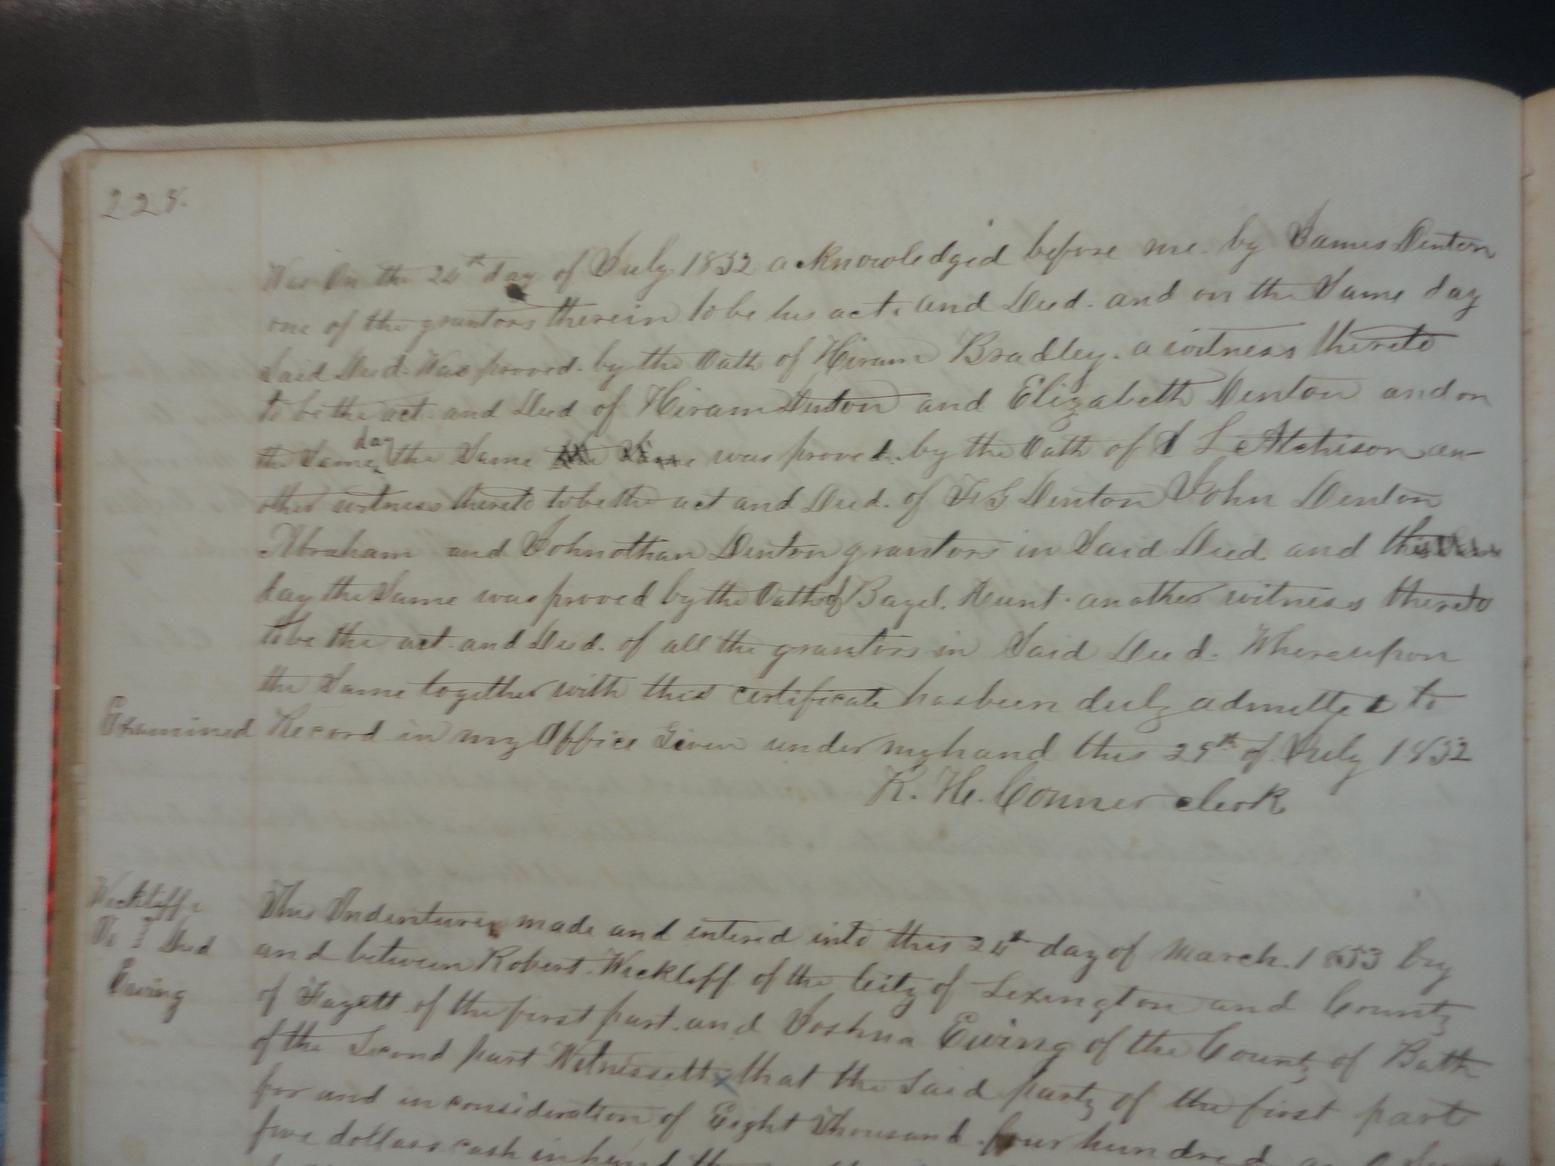 228.
Was On the 24th day of July 1832 acknowledged before me by James Denton
one of the grantors therein to be his act and Deed. and on the Same day
Said Deed. Was proved. by the Oath of Hiram Bradley. a witness thereto
to be the act. and Deed of Hiram Denton and Elizabeth Denton and on
the Same day the Same was proved. by the Oath of S L Atchison an-
other witness thereto to be the act and Deed. of F S Denton John Denton
Abraham and Johnothan Denton grantors in Said Deed. and this
day the Same was proved by the Oath of Bazel. Hunt. another witness thereto
to be the act. and Deed. of all the grantors in Said Deed. Whereupon
the Same together with this certificate has been duly admitted to
Examined Record in my Office Given under my hand this 29th of July 1832
K. H. Conner clerk
Wickliffe
To } Deed
Ewing
This Indenture made and entered into this 24th day of March. 1853 by
and between Robert. Wickliff of the City of Lexington and County
of Fayett of the first part. and Joshua Ewing of the County of Bath
of the Second part Witnesseth that the Said party of the first part
for and in consideration of Eight Thousand four hundred
five dollars cash in hand